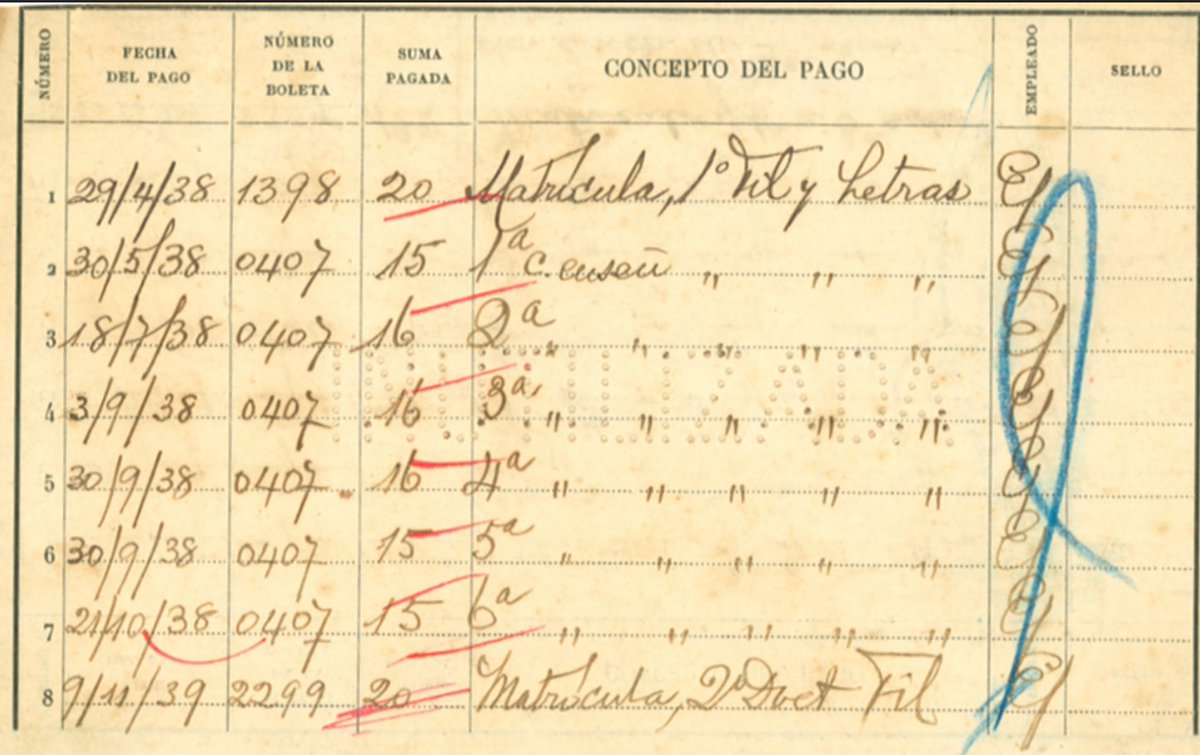 NÚMERO FECHA DEL PAGO NÚMERO DE LA BOLETA SUMA PAGADA CONCEPTO DEL PAGO EMPLEADO SELLO
1 29/4/38 1398 20 Matrícula, 1º Fil y Letras
2 30/5/38 0407 15 1ª c. enseñ " " "
3 18/7/38 0407 16 2ª " " " " "
4 3/9/38 0407 16 3ª " " " " "
5 30/9/38 0407 16 4ª " " " " "
6 30/9/38 0407 15 5ª " " " " "
7 21/10/38 0407 15 6ª " " " " "
8 9/11/39 2299 20 Matrícula, 2º Doct Fil
INUTILIZADA